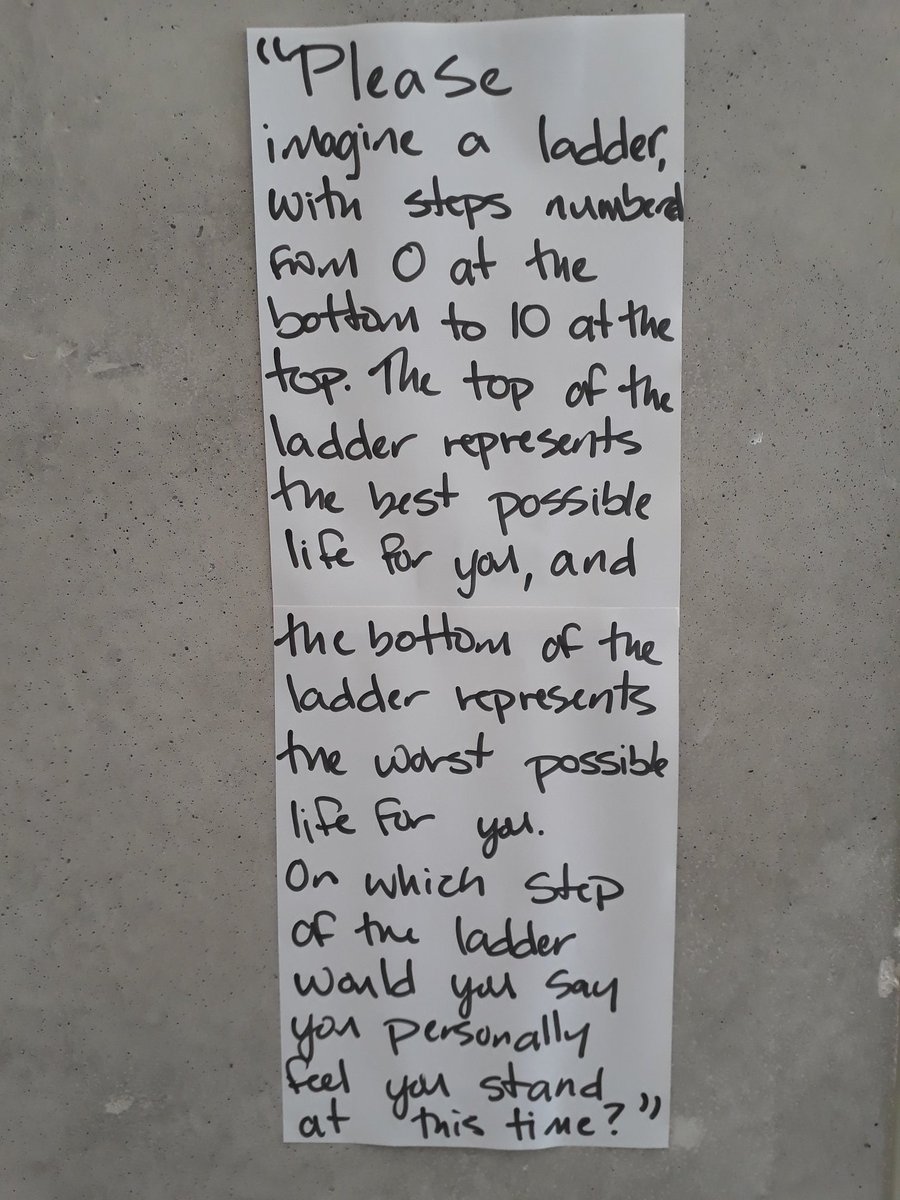 "Please
imagine a ladder,
with steps numbered
from 0 at the
bottom to 10 at the
top. The top of the
ladder represents
the best possible
life for you, and
the bottom of the
ladder represents
the worst possible
life for you.
On which step
of the ladder
would you say
you personally
feel you stand
at this time?"